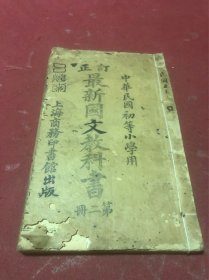 訂正
中華民國初等小學用
最新國文教科書
第二冊
上海商務印書館出版